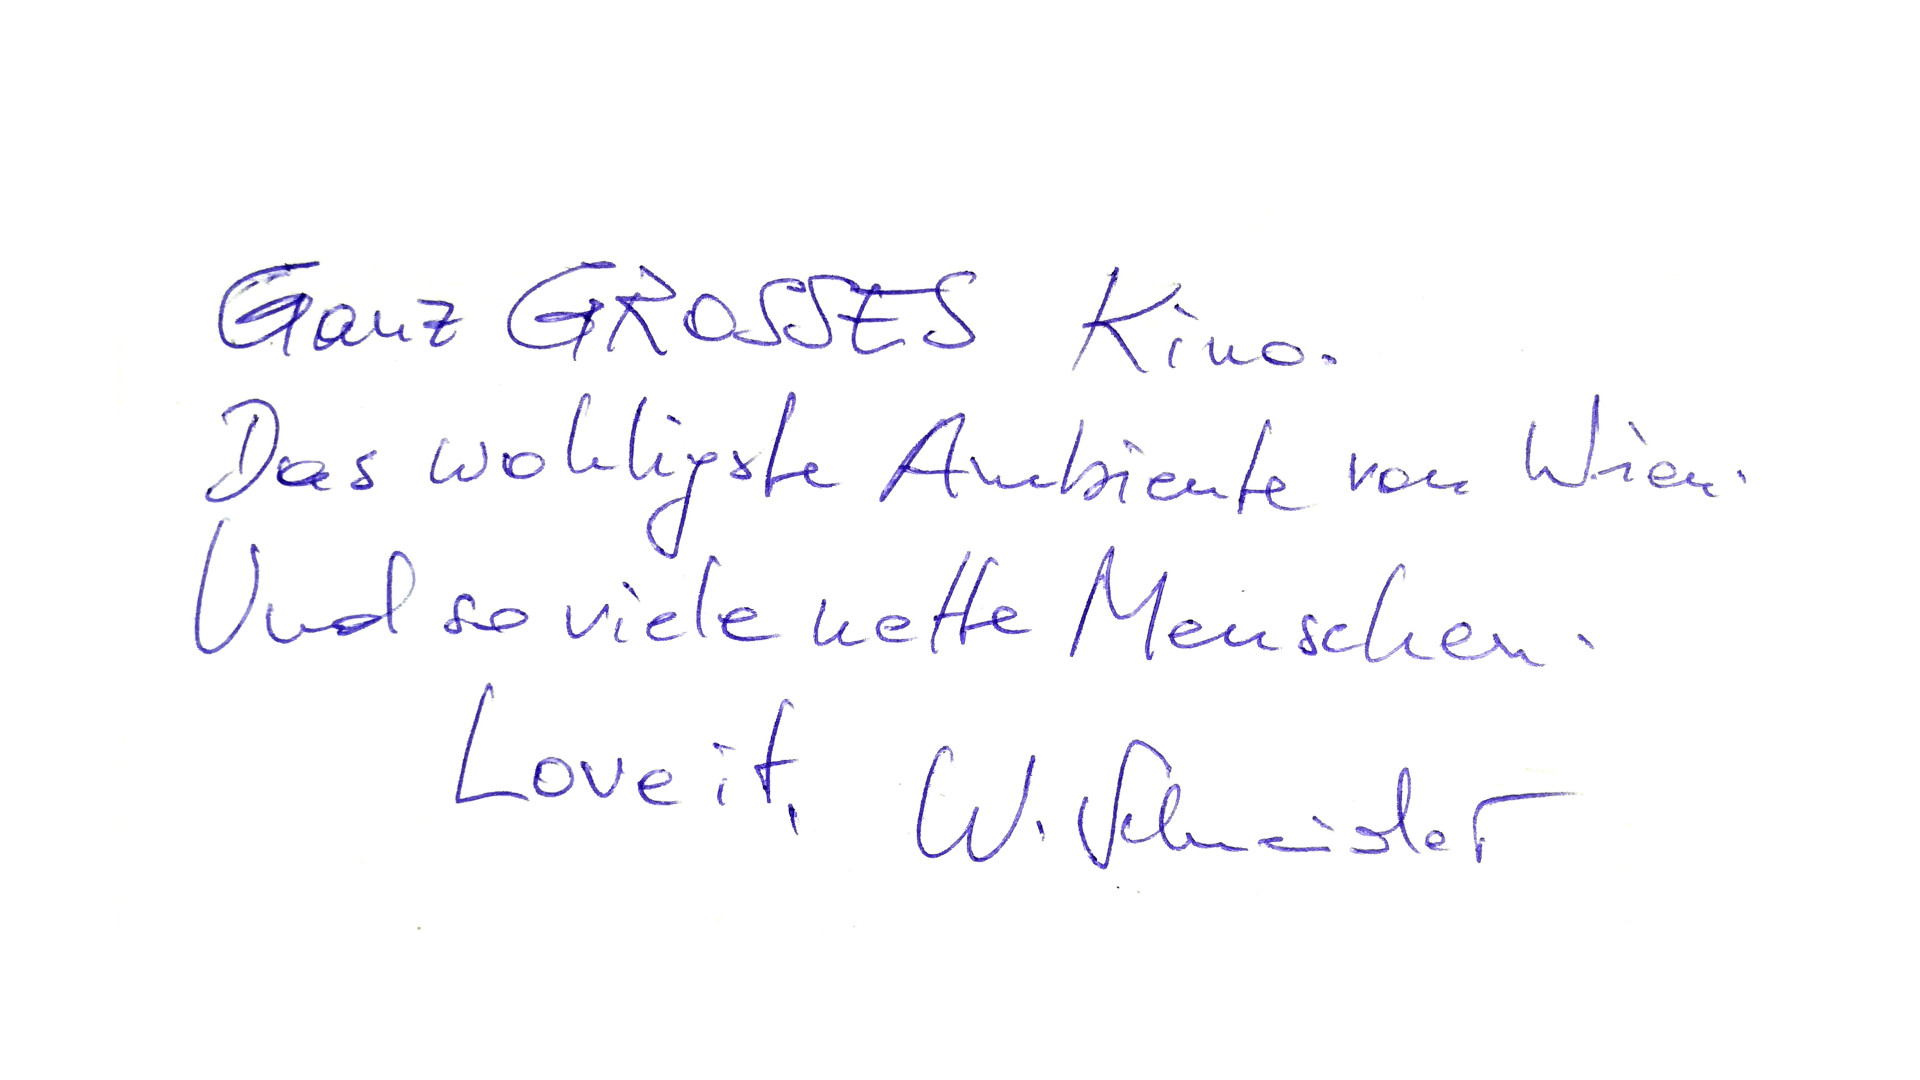 Ganz GROSSES Kino.
Das wohligste Ambiente von Wien.
Und so viele nette Menschen.
Love it, W. Schneider